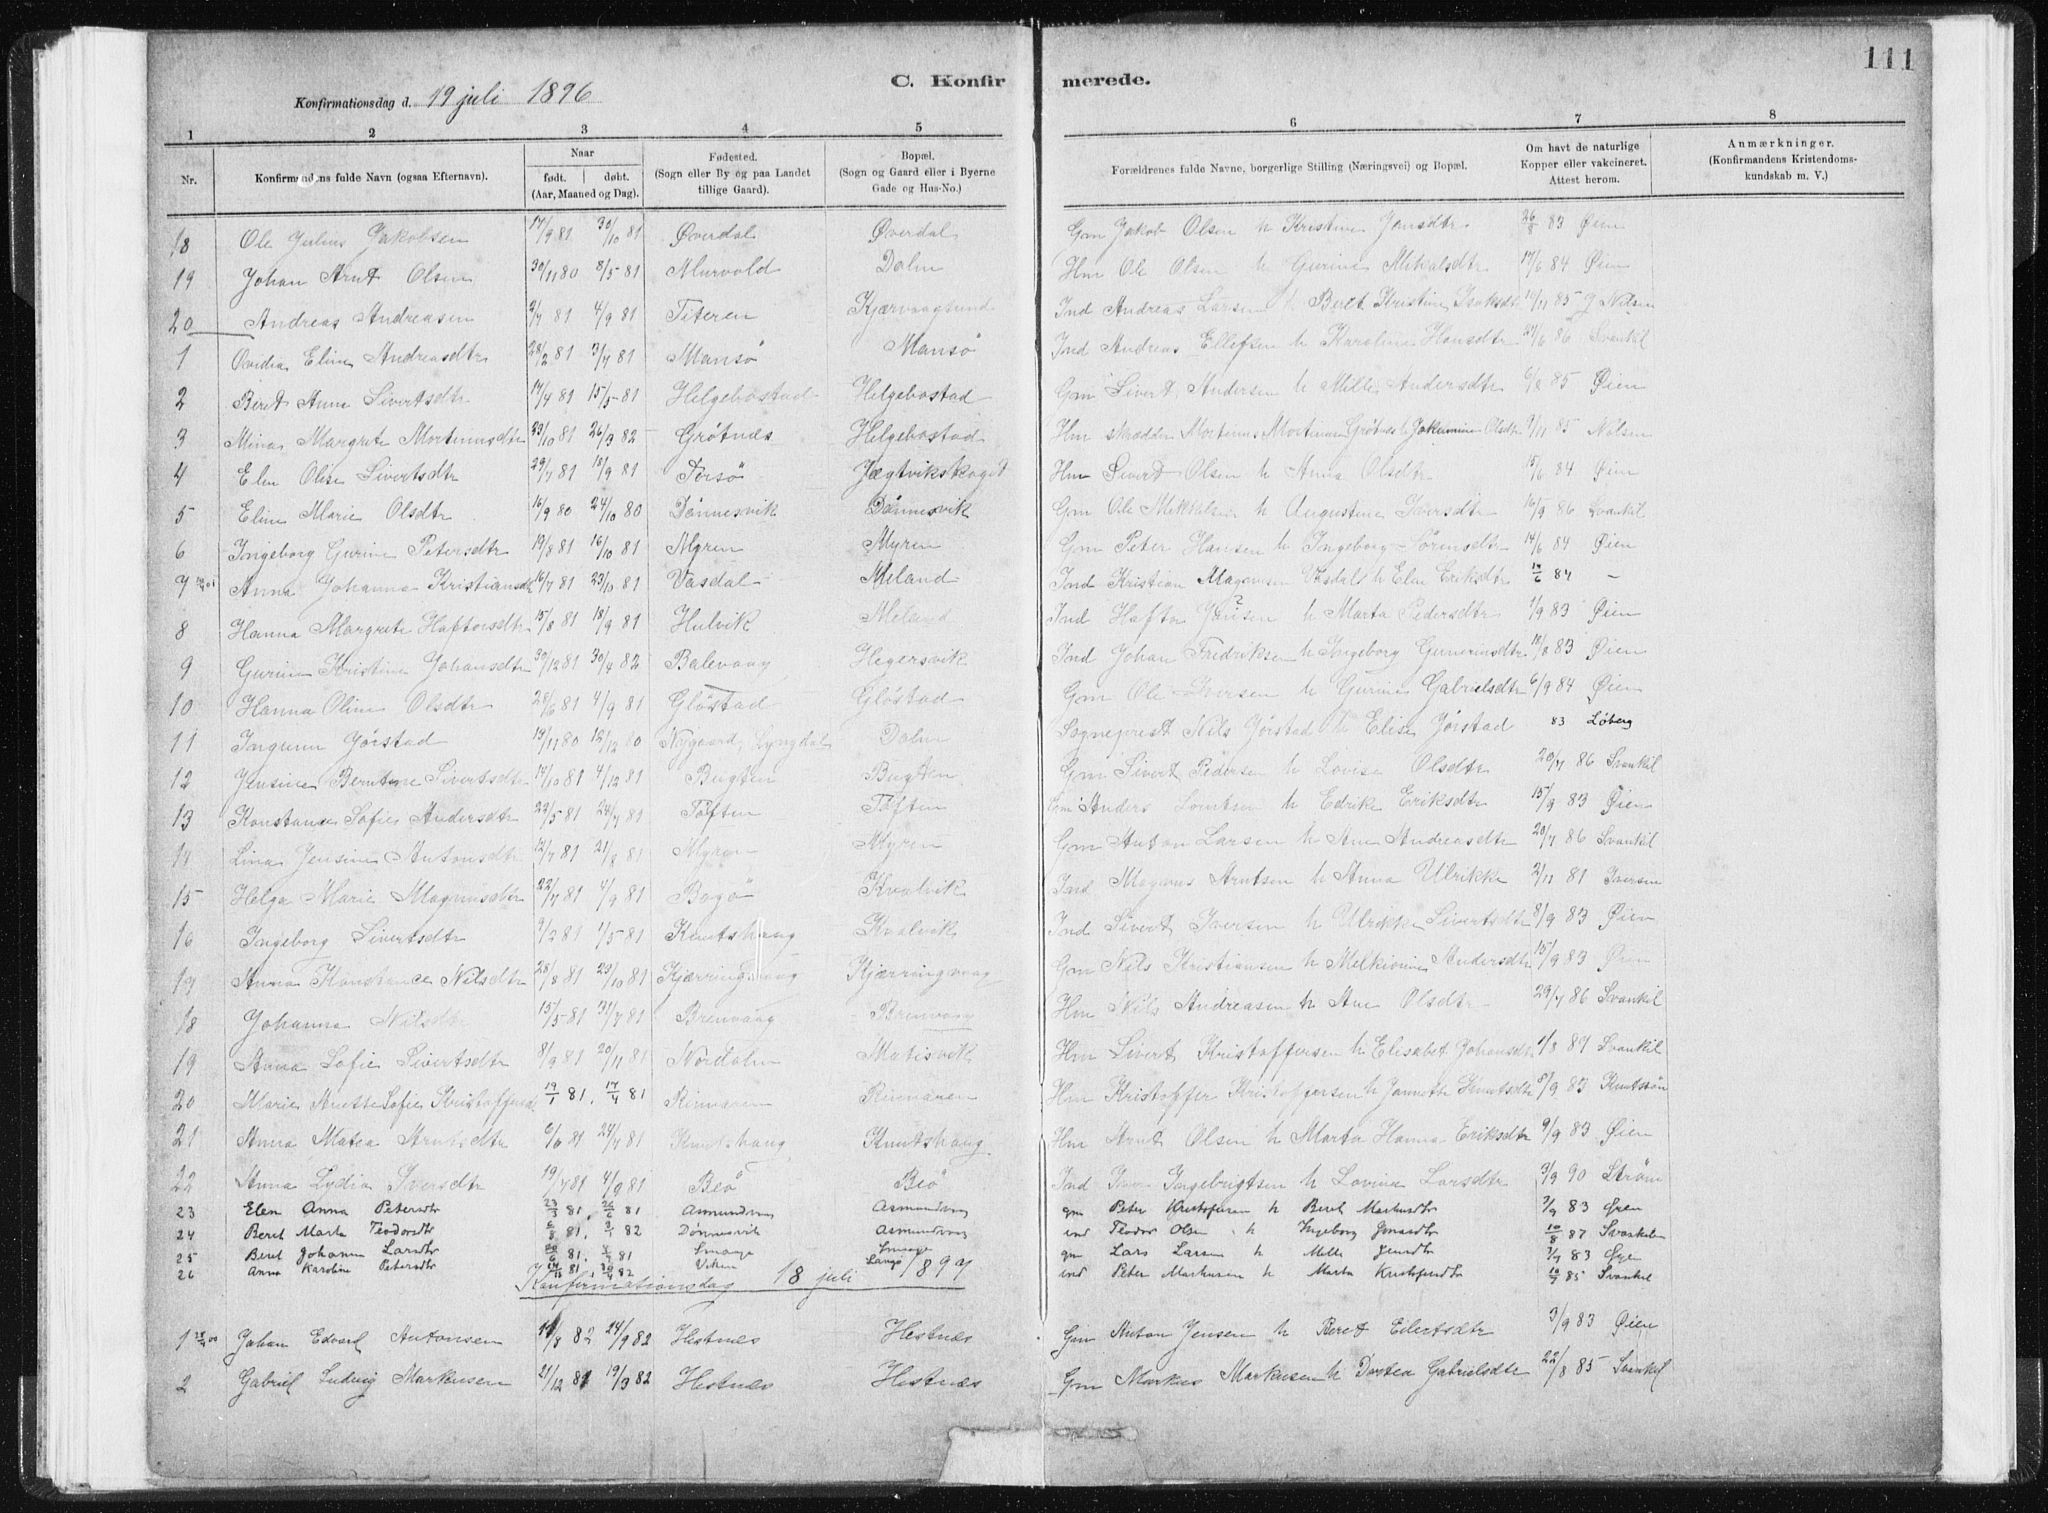 111
C. Konfir merede.
Konfirmationsdag d. 19 juli 1896
1 2 3 4 5 6 7 8
Nr. Konfirmandens fulde Navn (ogsaa Efternavn). Naar født. døbt. (Aar, Maaned og Dag). Fødested. (Sogn eller By og paa Landet tillige Gaard). Bopæl. (Sogn og Gaard eller i Byerne Gade og Hus-No.) Forældrenes fulde Navne, borgerlige Stilling (Næringsvei) og Bopæl. Om havt de naturlige Kopper eller vakcineret. Attest herom. Anmærkninger. (Konfirmandens Kristendomskundskab m. V.)
18 Ole Julius Jakobsen 17/9 81 30/10 81 Øverdal Øverdal Gm Jakob Olsen h Kristine Jensdtr 26/8 83 Øien
19 Johan Arnt Olsen 30/11 80 8/5 81 Murvold Dolm Hm Ole Olsen h Gurine Mikalsdtr 17/6 84 Øien
20 Andreas Andreasen 2/7 81 4/9 81 Titeren Kjærvaagsund Ind Andreas Larsen h Beret Kristine Isaksdtr 85 Nilsen
1 Ovidia Eline Andreasdtr 28/2 81 3/7 81 Mansö Mansö Ind Andreas Ellefsen h Karoline Hansdtr 86 Svankil
2 Beret Anne Sivertsdtr 17/4 81 15/5 81 Helgebostad Helgebostad Gm Sivert Andersen h Mille Andersdtr 6/8 85 Øien
3 Mina Margrete Mortensdtr 23/10 81 26/3 82 Grøtnes Helgebostad Hm skrædder Mortinus Mortensen Grøtnes h Jokumine Olsdtr 85 Nilsen
4 Elen Oline Sivertsdtr 29/7 81 18/9 81 Forsö Jægtvikskaget Hm Sivert Olsen h Anna Olsdtr 15/6 84 Øien
5 Eline Marie Olsdtr 16/9 80 24/10 80 Dönnesvik Dönnesvik Gm Ole Mikkelsen h Augustine Iversdtr 16/9 86 Svankil
6 Ingeborg Gurine Petersdtr 19/8 81 16/10 81 Myren Myren Gm Peter Hansen h Ingeborg Sörensdtr 14/6 84 Øien
7 Anna Johanna Kristiansdtr 16/7 81 23/10 81 Vasdal Meland Ind Kristian Magnusen Vasdal h Elen Eriksdtr 84 –
8 Hanna Margrete Haftorsdtr 15/8 81 18/9 81 Hulvik Meland Ind Haftor Jansen ? h Marta Pedersdtr 1/9 83 Øien
9 Gurine Kristine Johansdtr 30/12 81 30/4 82 Balevaag Hegersvik Ind Johan Fridriksen h Ingeborg Gunerusdtr 18/8 83 Øien
10 Hanna Oline Olsdtr 28/6 81 4/9 81 Glöstad Glöstad Gm Ole Iversen h Gurine Gabrielsdtr 6/9 84 Øien
11 Ingunn Jörstad 19/11 80 12/12 80 Nygaard, Lyngdal Dolm Sogneprest Nils Jörstad h Elise Jörstad 83 Löberg
12 Jensine Berntine Sivertsdtr 14/10 81 4/12 81 Bugten Bugten Gm Sivert Pedersen h Lovise Olsdtr 20/7 86 Svankil
13 Konstance Sofie Andersdtr 22/5 81 24/7 81 Töften Töften Gm Anders Lorntsen h Edrike Eriksdtr 15/9 83 Øien
14 Lina Jensine Antonsdtr 12/7 81 21/8 81 Myren Myren Gm Anton Larsen h Ane Andreasdtr 20/7 86 Svankil
15 Helga Marie Magnusdtr 22/7 81 4/9 81 Bogö Kvalvik Ind Magnus Arntsen h Anna Ulrikke 2/11 81 Iversen
16 Ingeborg Sivertsdtr 9/2 81 1/5 81 Knutshaug Kvalvik Ind Sivert Iversen h Ulrikke Sivertsdtr 8/9 83 Øien
17 Anna Konstance Nilsdtr 28/8 81 23/10 81 Kjærringvaag Kjærringvaag Gm Nils Kristiansen h Melkiorine Andersdtr 15/9 83 Øien
18 Johanna Nilsdtr 15/5 81 31/7 81 Brenvaag Brenvaag Hm Nils Andreasen h Ane Olsdtr 29/7 86 Svankil
19 Anna Sofie Sivertsdtr 8/9 81 20/11 81 Nordalm Matisvik Hm Sivert Kristoffersen h Elisabet Johansdtr 1/8 89 Svankil
20 Marie Anette Sofie Kristoffersd. 19/1 81. 17/4 81 Rinnaren Rinnaren Hm Kristoffer Kristoffersen h Jannette Knutsdtr 8/9 83 Knutsön
21 Anna Matea Arntsdtr 6/6 81 24/7 81 Knutshaug Knutshaug Hm Arnt Olsen h Marta Hanna Eriksdtr 9/9 83 Øien
22 Anna Lydia Iversdtr 19/7 81 4/9 81 Beö Beö Ind Iver Ingebrigtsen h Lovine Larsdtr 3/9 90 Ström
23 Elen Anna Petersdtr 23/3 81. 26/6 81 Asmundvag Asmundvag gm Peter Kristofersen h Beret Markusdtr 7/9 83 Øien
24 Beret Marta Teodorsdtr 6/8 81. 82 Dönnesvik Asmundvag ind Teodor Olsen h Ingeborg Jonasdtr 10/8 87 Svankil
25 Beret Johanna Larsdtr 81. 81 Smaage Smaage gm Lars Larsen h Mille Jensdtr 83 Øien
26 Anna Karoline Petersdtr 81. 82 Viken Langö ind Peter Markusen h Marta Kristofersdtr 85 Svankil
Konfirmationsdag 18 juli 1897
1 Johan Edvard Antonsen 11/8 82 24/9 82 Hestnes Hestnes Gm Anton Jensen h Beret Eilertsdtr 3/9 83 Øien
2 Gabriel Ludvig Markusen 21/12 81 19/3 82 Hestnes Hestnes Gm Markus Markusen h Dortea Gabrielsdtr 22/8 85 Svankil